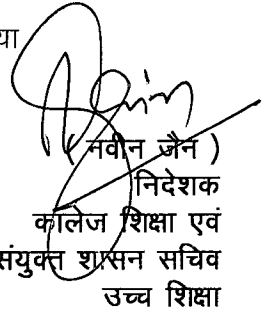 या
( नवीन जैन )
निदेशक
कॉलेज शिक्षा एवं
संयुक्त शासन सचिव
उच्च शिक्षा